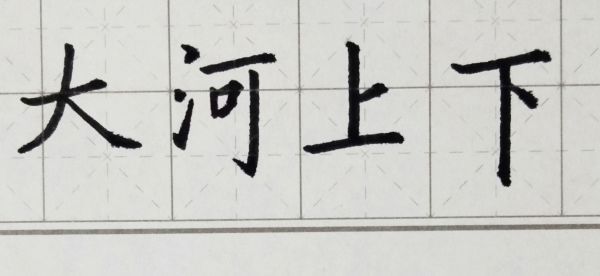 大河上下